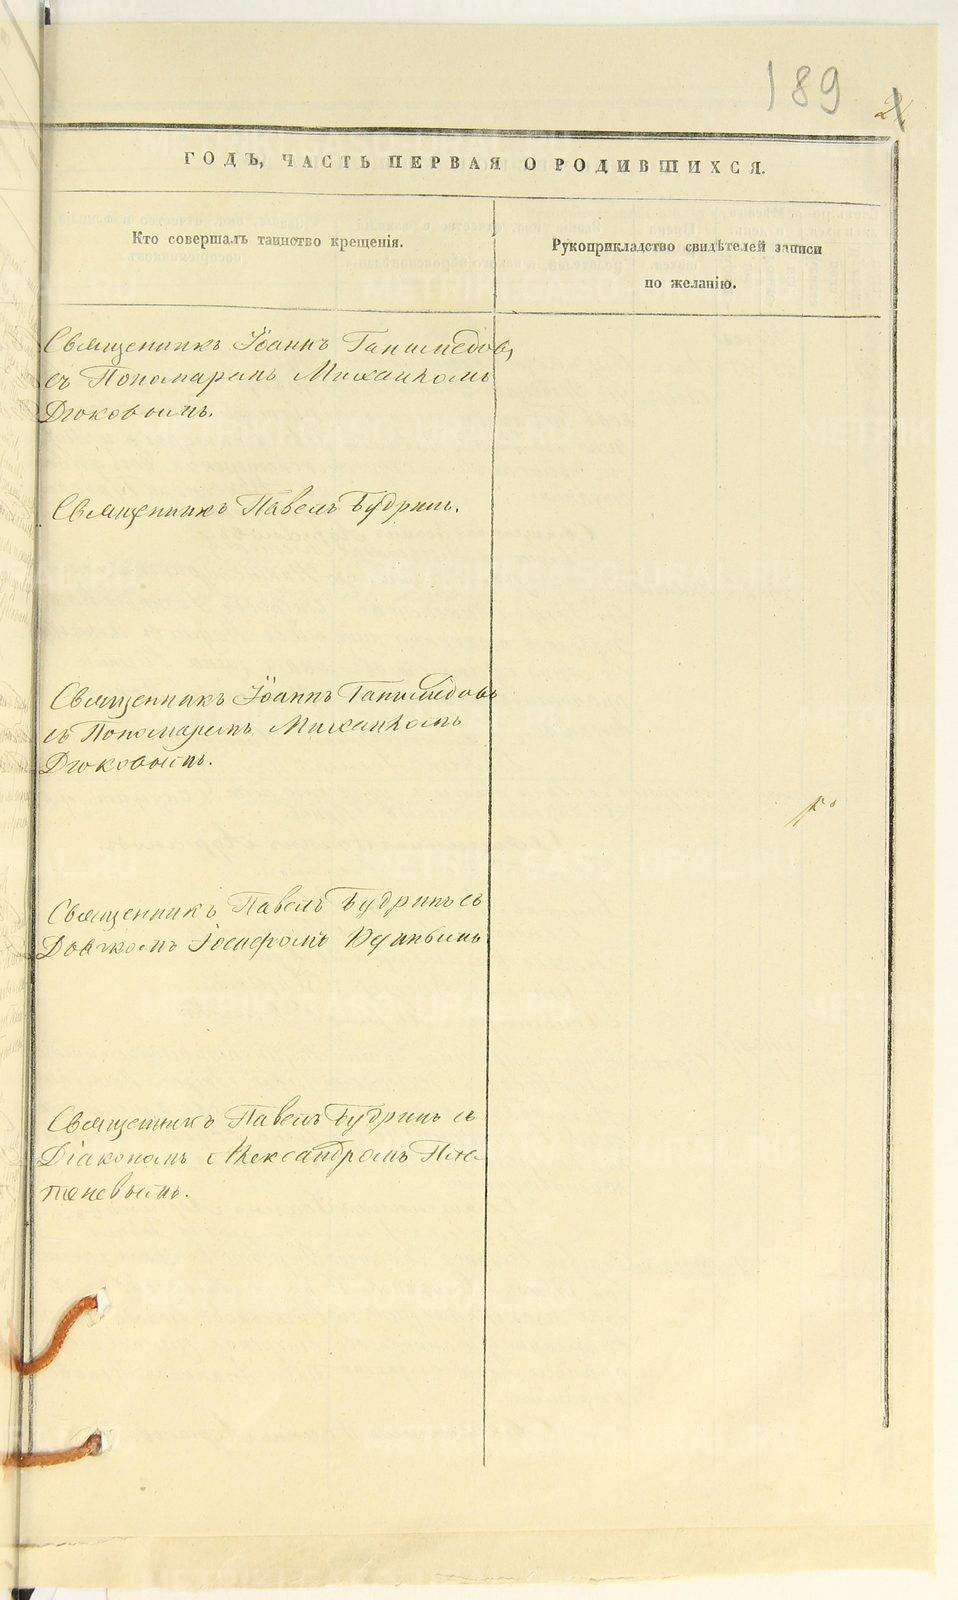 189
2
ГОДЪ, ЧАСТЬ ПЕРВАЯ О РОДИВШИХСЯ.
Кто совершалъ таинство крещенія.
Рукоприкладство свидѣтелей записи
по желанію.
Священникъ Іоаннъ Ганимедовъ
съ Пономаремъ Михаиломъ
Дюковымъ.
Священникъ Павелъ Будринъ.
Священникъ Іоаннъ Ганимедовъ
съ Пономаремъ Михаиломъ
Дюковымъ.
Священникъ Павелъ Будринъ съ
Дьячкомъ Іосифомъ
Священникъ Павелъ Будринъ съ
Діакономъ Александромъ
METRIKI.GASO-URAL.RU